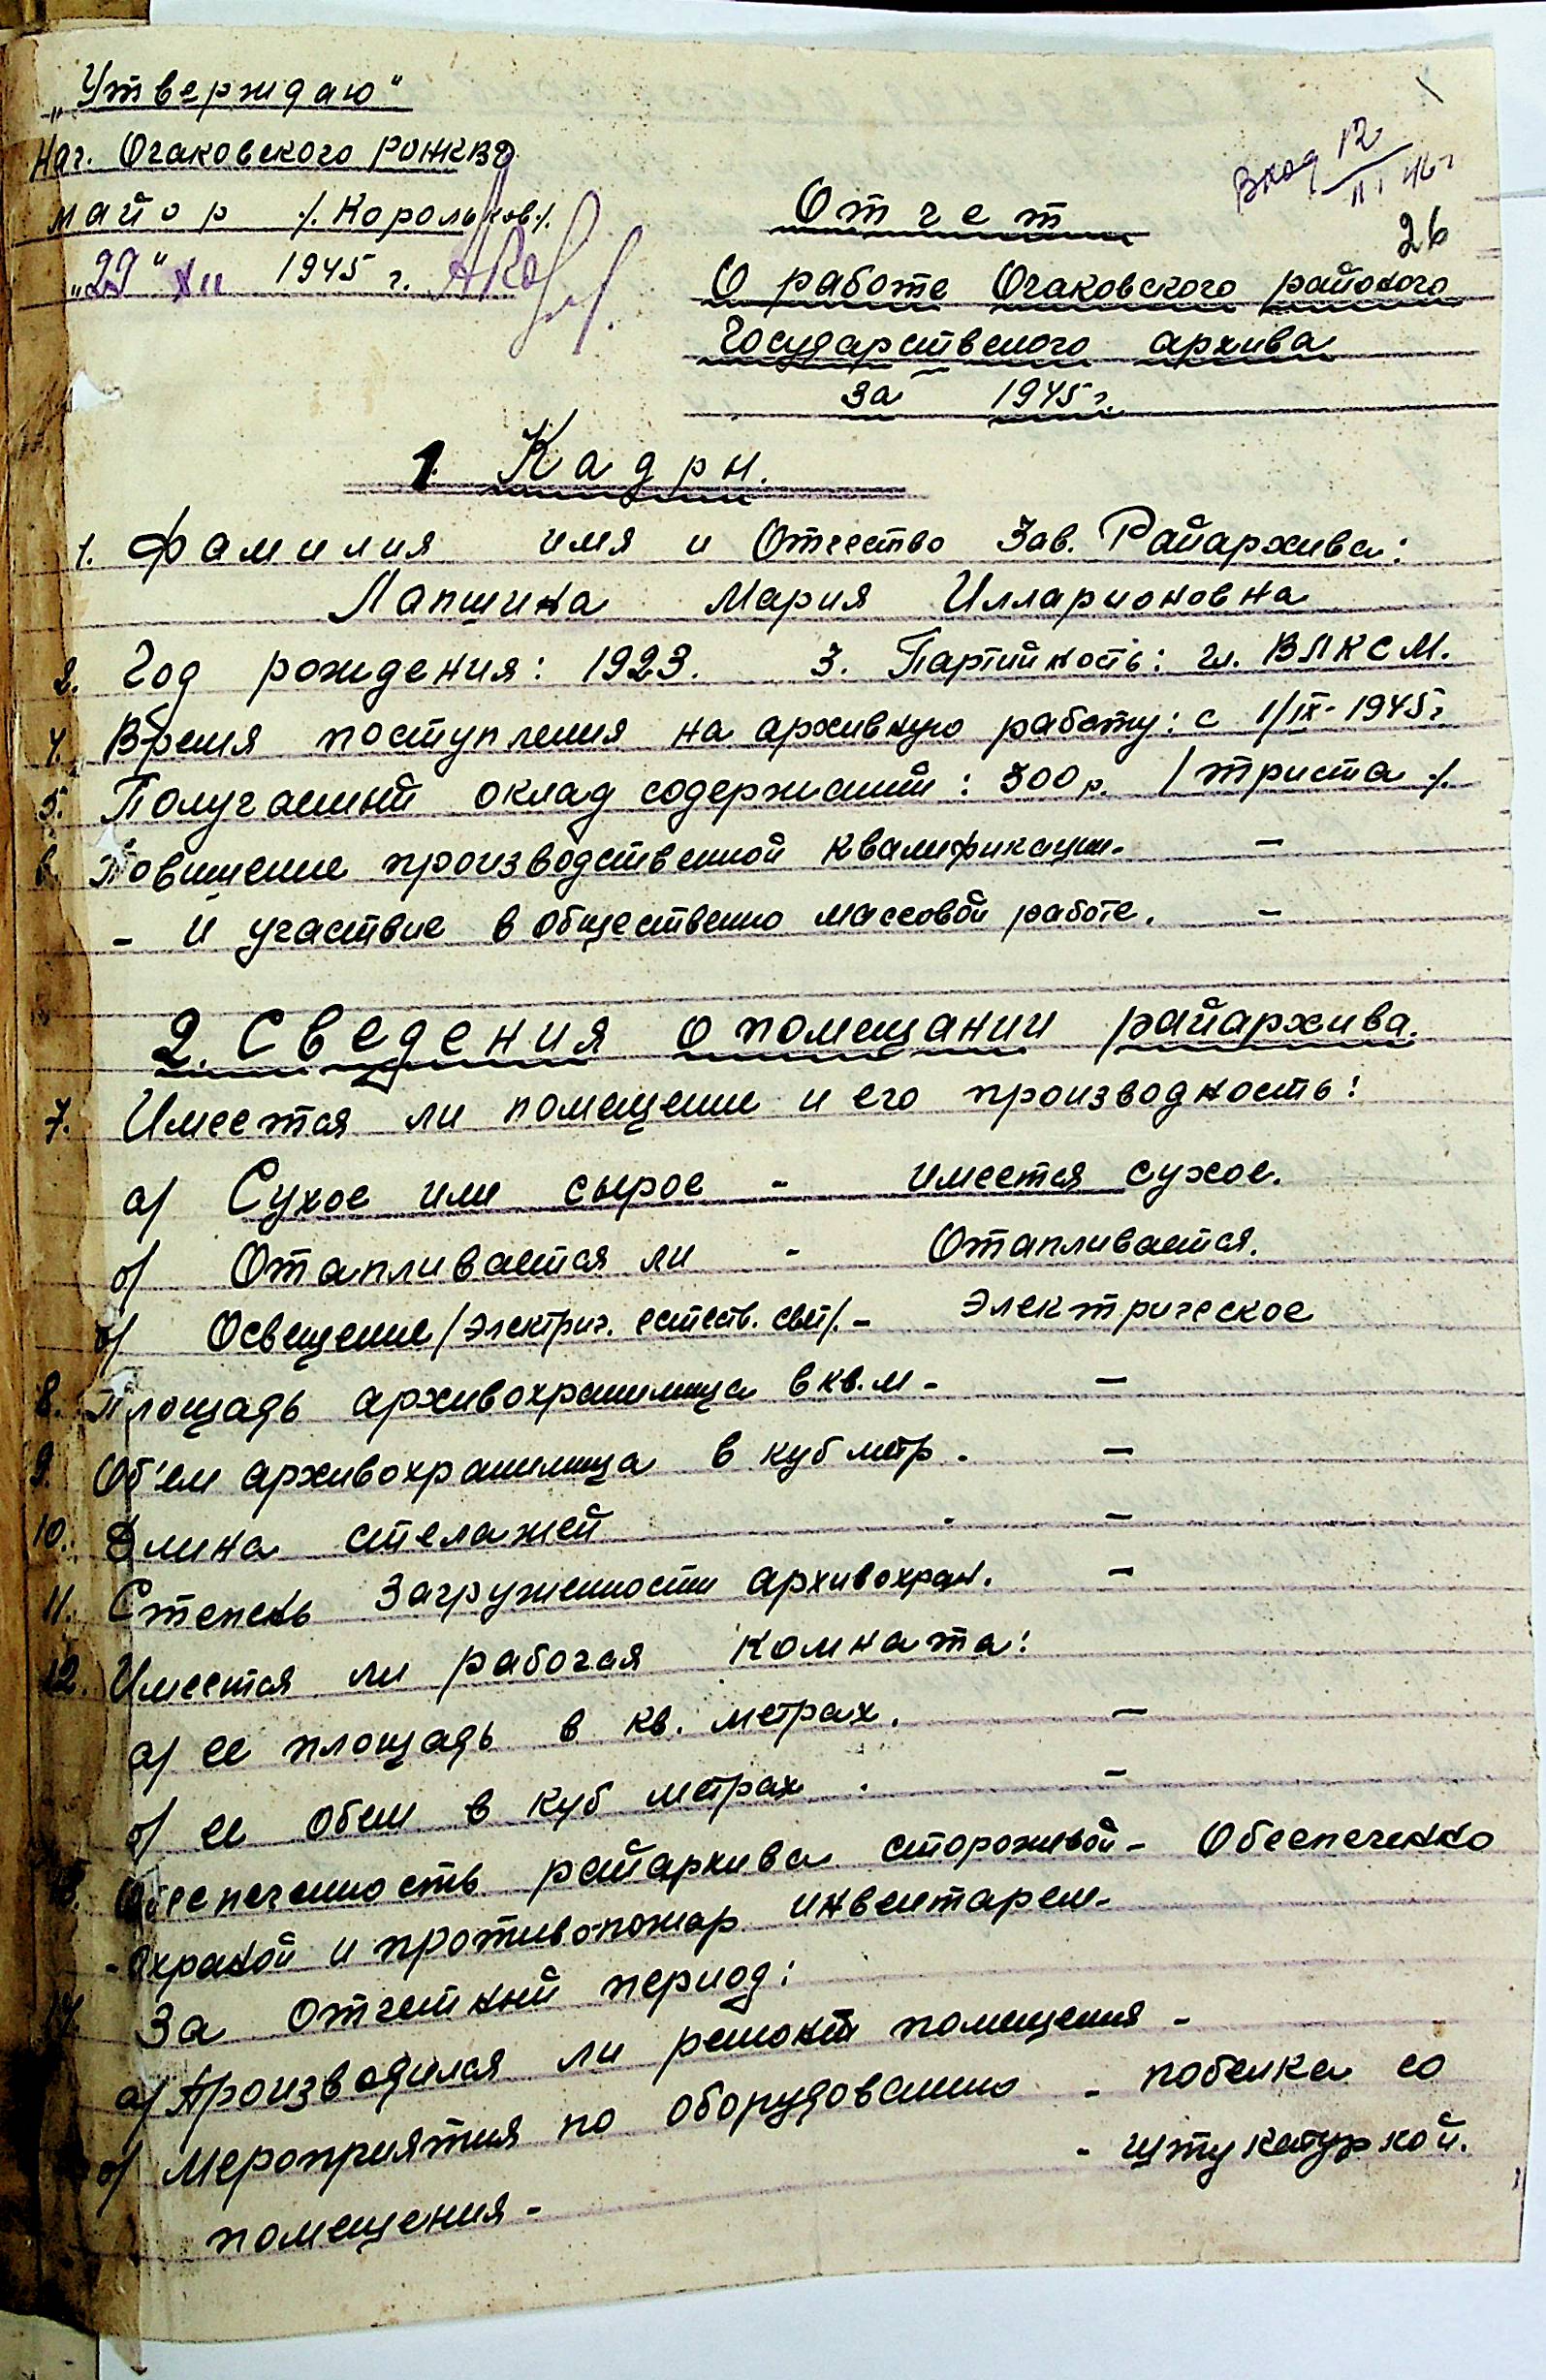 „Утверждаю“
Нач. Очаковского РОНКВД
майор /. Корольков /.
„29“ XII 1945 г.
Вход 12
II 46 г
26
Отчет
О работе Очаковского районого
Государственого архива
за 1945 г.
1. Кадры.
1. Фамилия имя и Отчество Зав. Райархива:
Лапшина Мария Илларионовна
2. Год рождения: 1923. 3. Партийность: чл. ВЛКСМ.
4. Время поступления на архивную работу: с 1/IX-1945 г
5. Получаемый оклад содержаний: 300 р. /триста/.
6. Повишение производственной квалификации. –
– И участвие в общественно массовой работе. –
2. Сведения о помещании райархива.
7. Имеется ли помещение и его производность:
а/ Сухое или сырое - имеется сухое.
б/ Отапливается ли - Отапливается.
в/ Освещение /электрич. естеств. свет/. - Электрическое
8. Площадь архивохранилища в кв. м - –
9. Об'ем архивохранилища в куб метр. –
10. Длина стелажей . –
11. Степень Загруженности архивохран. –
12. Имеется ли рабочая комната:
а/ ее площадь в кв. метрах. –
б/ ее обем в куб метрах . –
13. Обеспеченность райархива сторожевой - Обеспеченно
- охраной и противопожар инвентарем-
14. За отчетный период:
а/ Производился ли ремонт помещения -
б/ Мероприятия по оборудованию - побелка со
- штукатуркой.
помещения -